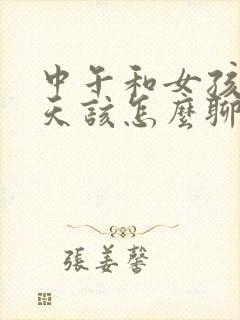 中午和女孩
天該怎麼聊
張姜馨